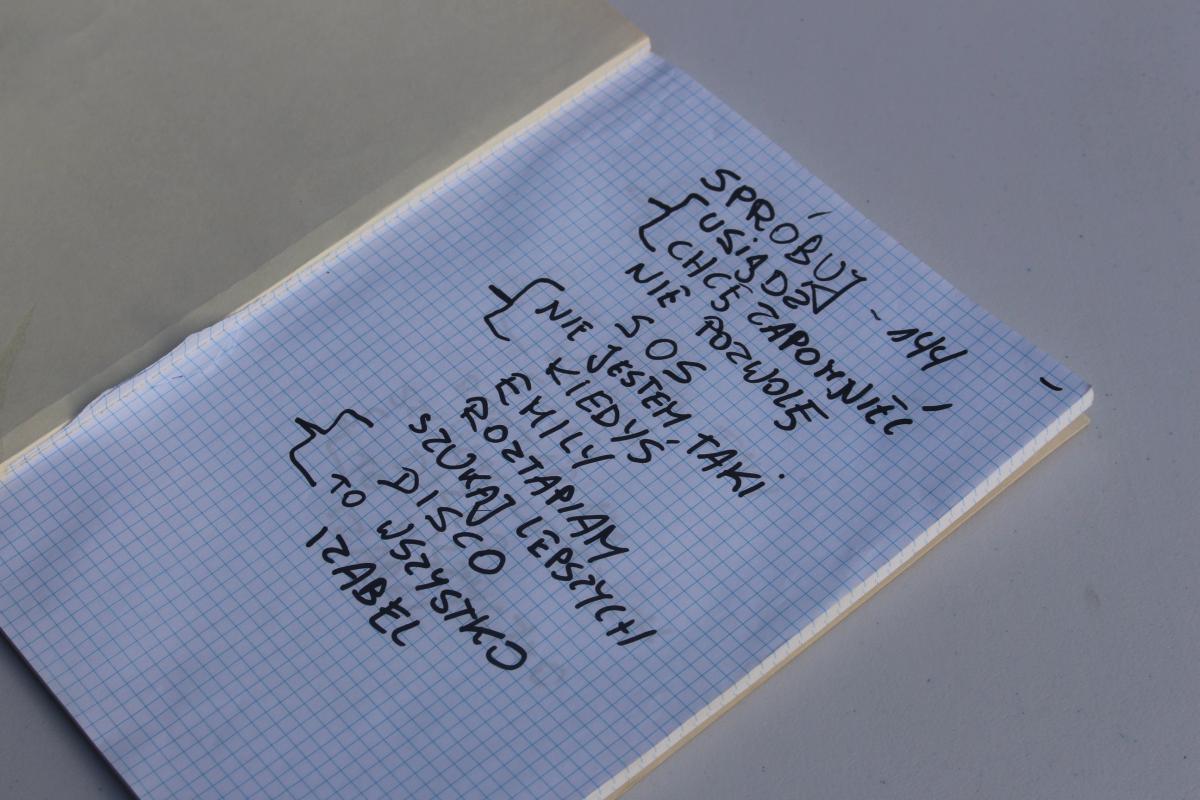 SPRÓBUJ - 144
USIĄDŹ
CHCĘ ZAPOMNIEĆ
NIE POZWOLĘ
SOS
NIE JESTEM TAKI
KIEDYŚ
EMILY
ROZTAPIAM
SZUKAJ LEPSZYCH
DISCO
TO WSZYSTKO
IZABEL